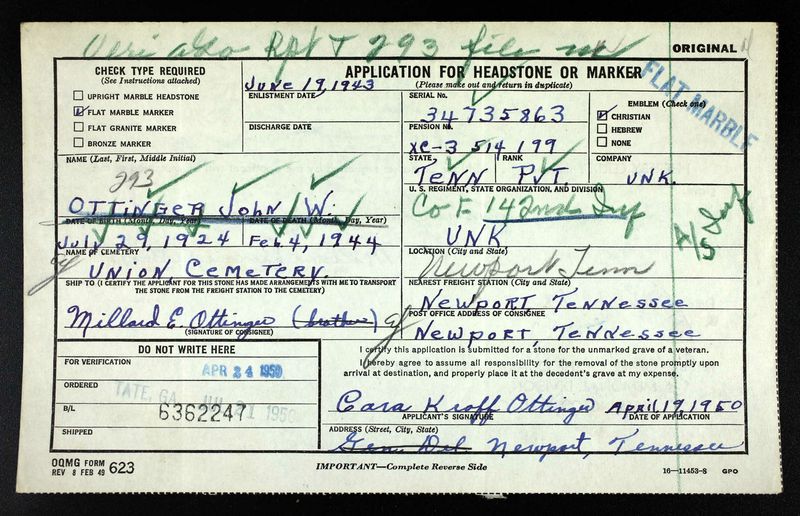 Veri also Rpt + 293 file
ORIGINAL
CHECK TYPE REQUIRED
(See Instructions attached)
UPRIGHT MARBLE HEADSTONE
FLAT MARBLE MARKER
FLAT GRANITE MARKER
BRONZE MARKER
APPLICATION FOR HEADSTONE OR MARKER
(Please make out and return in duplicate)
FLAT MARBLE
June 19, 1943
ENLISTMENT DATE
DISCHARGE DATE
SERIAL No.
34735863
PENSION No.
XC-3 514 199
EMBLEM (Check one)
CHRISTIAN
HEBREW
NONE
NAME (Last, First, Middle Initial)
293
OTTINGER John W.
STATE
TENN
RANK
PVT.
COMPANY
UNK.
U. S. REGIMENT, STATE ORGANIZATION, AND DIVISION
Co F. 142nd Inf
DATE OF BIRTH (Month, Day, Year)
DATE OF DEATH (Month, Day, Year)
July 29, 1924 Feb. 4, 1944
UNK
NAME OF CEMETERY
UNION, CEMETERY.
LOCATION (City and State)
Newport Tenn
SHIP TO (I CERTIFY THE APPLICANT FOR THIS STONE HAS MADE ARRANGEMENTS WITH ME TO TRANSPORT
THE STONE FROM THE FREIGHT STATION TO THE CEMETERY)
NEAREST FREIGHT STATION (City and State)
NEWPORT TENNESSEE
Millard E. Ottinger (brother)
(SIGNATURE OF CONSIGNEE)
POST OFFICE ADDRESS OF CONSIGNEE
NEWPORT, TENNESSEE
DO NOT WRITE HERE
FOR VERIFICATION
APR 24 1950
ORDERED
TATE, GA. JUL 21 1950
B/L
6362247
SHIPPED
I certify this application is submitted for a stone for the unmarked grave of a veteran.
I hereby agree to assume all responsibility for the removal of the stone promptly upon
arrival at destination, and properly place it at the decedent's grave at my expense.
Cara Kroff Ottinger April 19, 1950
APPLICANT'S SIGNATURE
DATE OF APPLICATION
ADDRESS (Street, City, State)
Gen. Del Newport, Tennessee
OQMG FORM
REV 8 FEB 49 623
IMPORTANT—Complete Reverse Side
16—11453-8 GPO